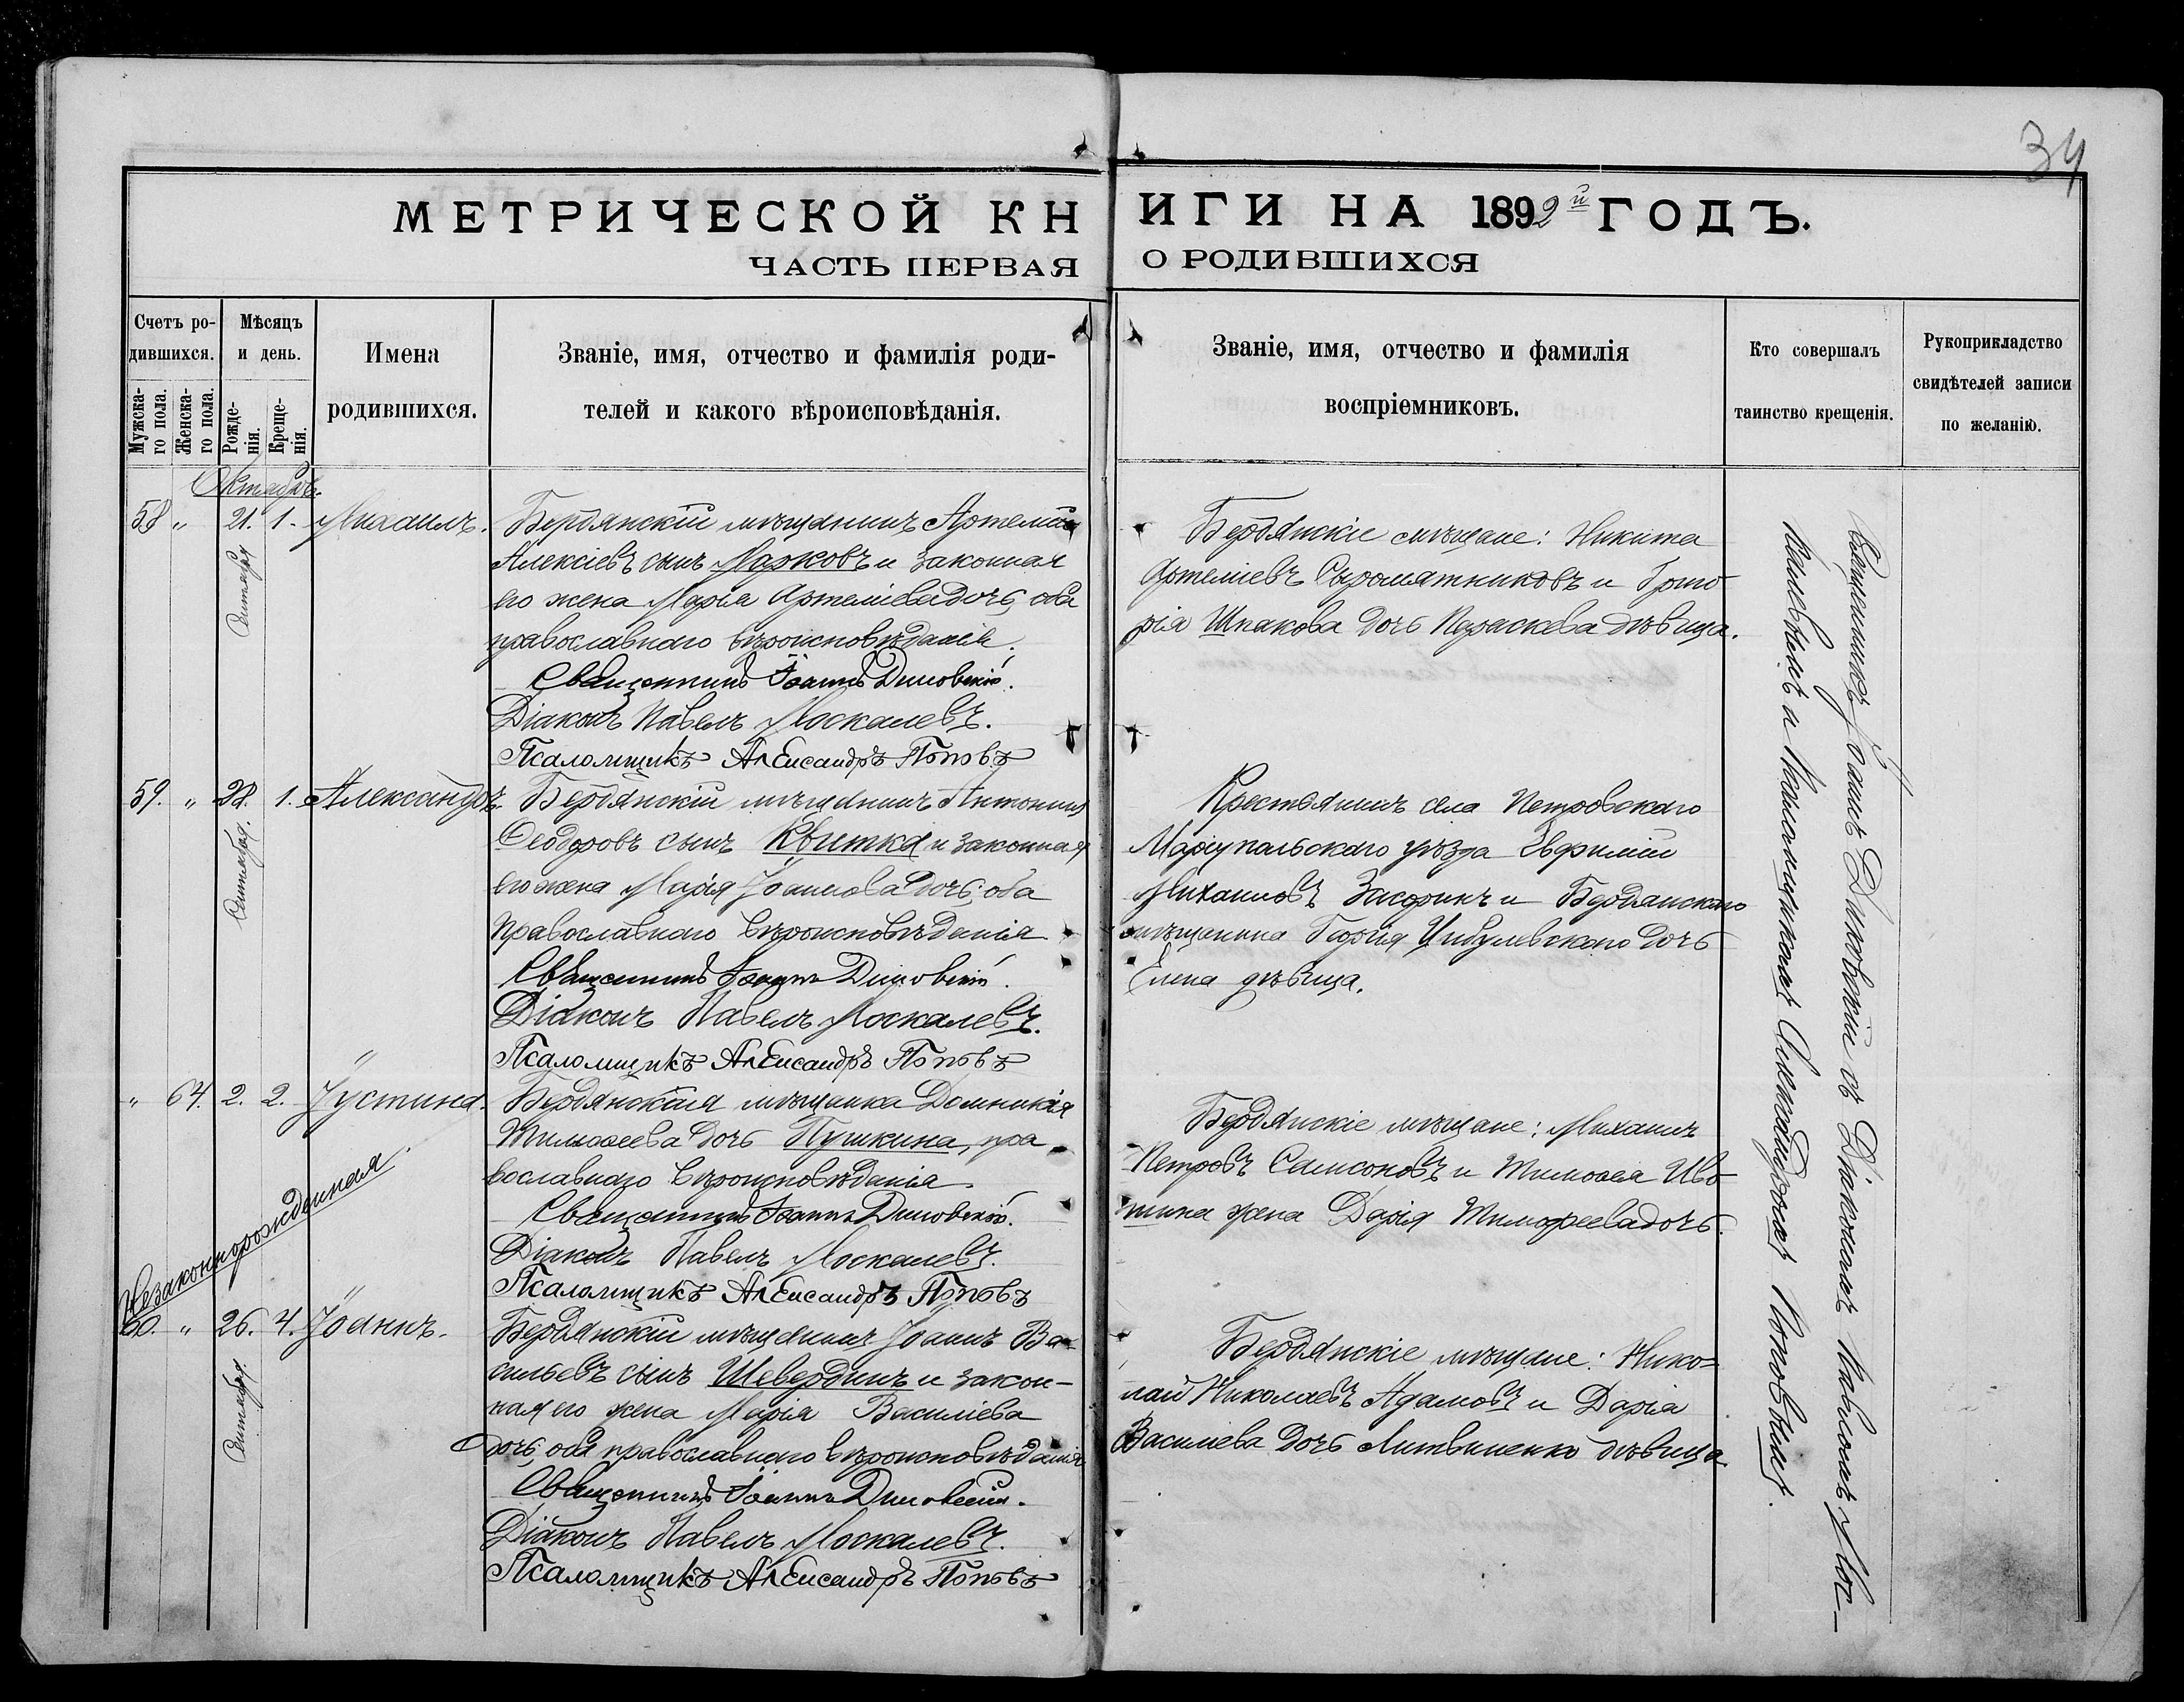 34
МЕТРИЧЕСКОЙ КНИГИ НА 1892й ГОДЪ.
ЧАСТЬ ПЕРВАЯ О РОДИВШИХСЯ
Счетъ ро-
дившихся.
Мужска-
го пола.
Женска-
го пола.
Мѣсяцъ
и день.
Рожде-
нія.
Креще-
нія.
Имена
родившихся.
Званіе, имя, отчество и фамилія роди-
телей и какого вѣроисповѣданія.
Званіе, имя, отчество и фамилія
воспріемниковъ.
Кто совершалъ
таинство крещенія.
Рукоприкладство
свидѣтелей записи
по желанію.
Октябрь.
58 " 21. 1. Михаилъ.
Сентября
Бердянскій мѣщанинъ Артемій
Алексіевъ сынъ Марковъ и законная
его жена Марія Артеміева дочь, оба
православнаго вѣроисповѣданія.
Священникъ Іоаннъ Димовскій.
Діаконъ Павелъ Москалевъ.
Псаломщикъ Александръ Поповъ
Бердянскіе мѣщане: Никита
Артеміевъ Сыромятниковъ и Григо-
рія Шпакова дочь Параскева дѣвица.
59. " 28. 1. Александръ.
Сентября.
Бердянскій мѣщанинъ Антоній
Ѳеодоровъ сынъ Квитка и законная
его жена Марія Іоаннова дочь; оба
православнаго вѣроисповѣданія
Священникъ Іоаннъ Димовскій.
Діаконъ Павелъ Москалевъ.
Псаломщикъ Александръ Поповъ
Крестьянинъ села Петровскаго
Маріупольскаго уѣзда Евфимій
Михаиловъ и Бердянскаго
мѣщанина Георгія Цибулевскаго дочь
Елена дѣвица.
" 64. 2. 2. Іустина.
Незаконнорожденная.
Бердянская мѣщанка Домникія
Тимоѳеева дочь Пушкина, пра-
вославнаго вѣроисповѣданія.
Священникъ Іоаннъ Димовскій.
Діаконъ Павелъ Москалевъ.
Псаломщикъ Александръ Поповъ
Бердянскіе мѣщане: Михаилъ
Петровъ Самсоновъ и Тимоѳея Иво-
тина жена Дарія Тимоѳеева дочь.
60. " 26. 4. Іоаннъ.
Сентября.
Бердянскій мѣщанинъ Іоаннъ Ва-
сильевъ сынъ Шевердинъ и закон-
ная его жена Марія Василіева
дочь; оба православнаго вѣроисповѣданія
Священникъ Іоаннъ Димовскій.
Діаконъ Павелъ Москалевъ.
Псаломщикъ Александръ Поповъ
Бердянскіе мѣщане: Нико-
лай Николаевъ Адамовъ и Дарія
Василіева дочь Литвиненко дѣвица
Священникъ Іоаннъ Димовскій съ Діакономъ Павломъ Мос-
калевымъ и Псаломщикомъ Александромъ Поповымъ.